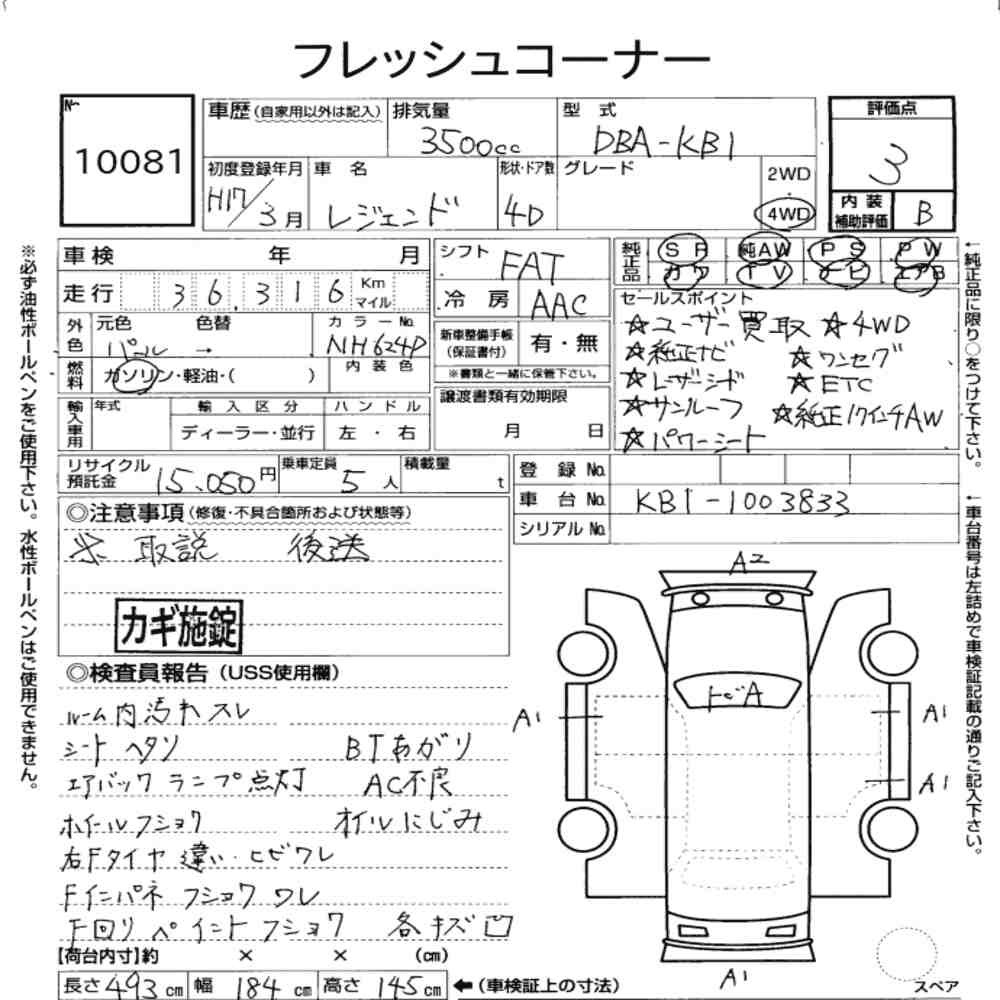 フレッシュコーナー
№
10081
車歴(自家用以外は記入)
排気量
3500cc
型式
DBA-KB1
評価点
3
初度登録年月
H17/3月
車名
レジェンド
形状・ドア数
4D
グレード
2WD
・
4WD
内装
補助評価
B
車検 年 月
走行 36,316 Km
マイル
シフト FAT
冷房 AAC
純正品
SR 純AW PS PW
カワ TV ナビ エアB
外色
元色 色替
パール →
カラーNo.
NH624P
燃料
ガソリン・軽油・( )
内装色
新車整備手帳
(保証書付)
有・無
※書類と一緒に保管下さい。
セールスポイント
☆ユーザー買取 ☆4WD
☆純正ナビ ☆ワンセグ
☆レザーシート ☆ETC
☆サンルーフ ☆純正17インチAW
☆パワーシート
輸入車用
年式
輸入区分
ディーラー・並行
ハンドル
左・右
譲渡書類有効期限
月 日
リサイクル
預託金
15.050円
乗車定員
5人
積載量
t
登録No.
車台No. KB1-1003833
シリアルNo.
◎注意事項(修復・不具合箇所および状態等)
※ 取説 後送
カギ施錠
◎検査員報告(USS使用欄)
ルーム内汚れスレ
シートヘタリ BTあがり
エアバックランプ点灯 AC不良
ホイールフショク オイルにじみ
右Fタイヤ違い・ヒビワレ
Fインパネ フショク ワレ
F回りペイントフショク 各キズ凹
【荷台内寸】約 × × (cm)
長さ493cm 幅184cm 高さ145cm ←(車検証上の寸法)
A2
トビA
A1
A1
A1
A1
スペア
※必ず油性ボールペンをご使用下さい。水性ボールペンはご使用できません。
←純正品に限り○をつけて下さい。
←車台番号は左詰めで車検証記載の通りご記入下さい。